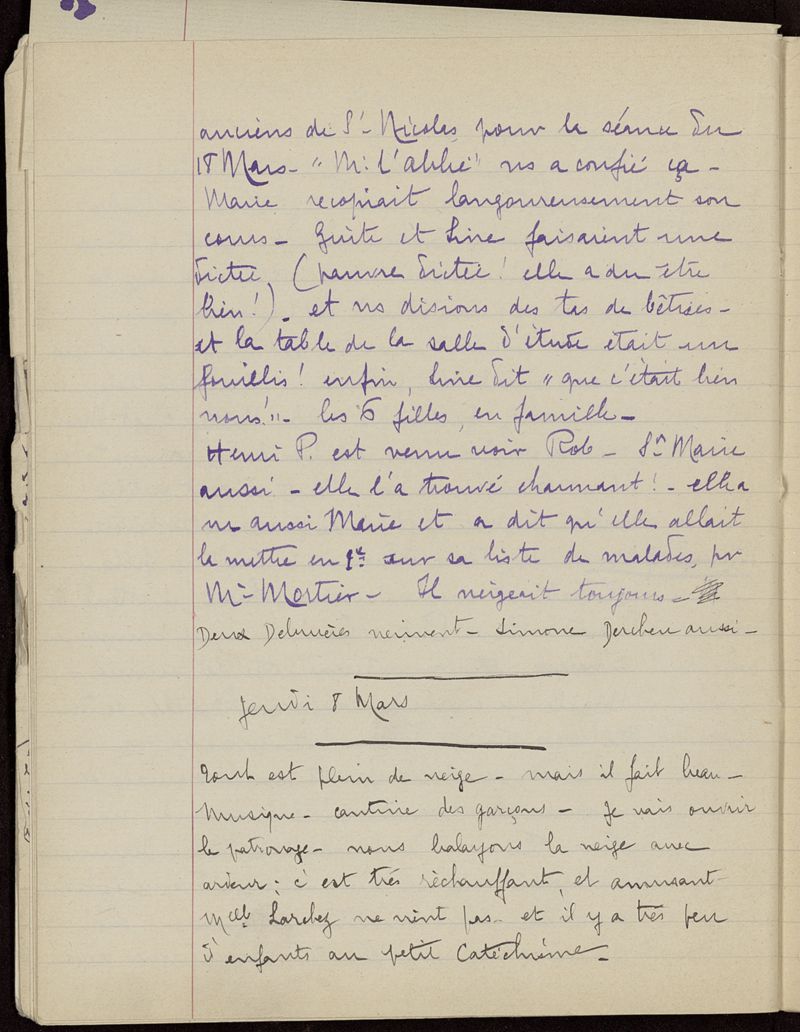 anciens de St-Nicolas, pour la séance du
18 Mars - "Mr l'abbé" ns a confié ça -
Marie recopiait langoureusement son
cours - Guite et Line faisaient une
dictée, (pauvre dictée ! elle a du être
bien !). et ns disions des tas de bêtises -
et la table de la salle d'étude était un
fouillis ! enfin, Line dit "que c'était bien
nous !" - les 6 filles, en famille -
Henri P. est venu voir Rob - Sr Marie
aussi - elle l'a trouvé charmant ! - elle a
vu aussi Marie et a dit qu'elle allait
le mettre en 1er sur sa liste de malades, pr
Mr Mortier - Il neigeait toujours -
Deux viennent - Simone aussi -
Jeudi 8 Mars
Tout est plein de neige - mais il fait beau -
Musique - cantine des garçons - Je vais ouvrir
le patronage - nous balayons la neige avec
ardeur ; c'est très réchauffant, et amusant -
Melle Larchez ne vient pas - et il y a très peu
d'enfants au petit Catéchisme -